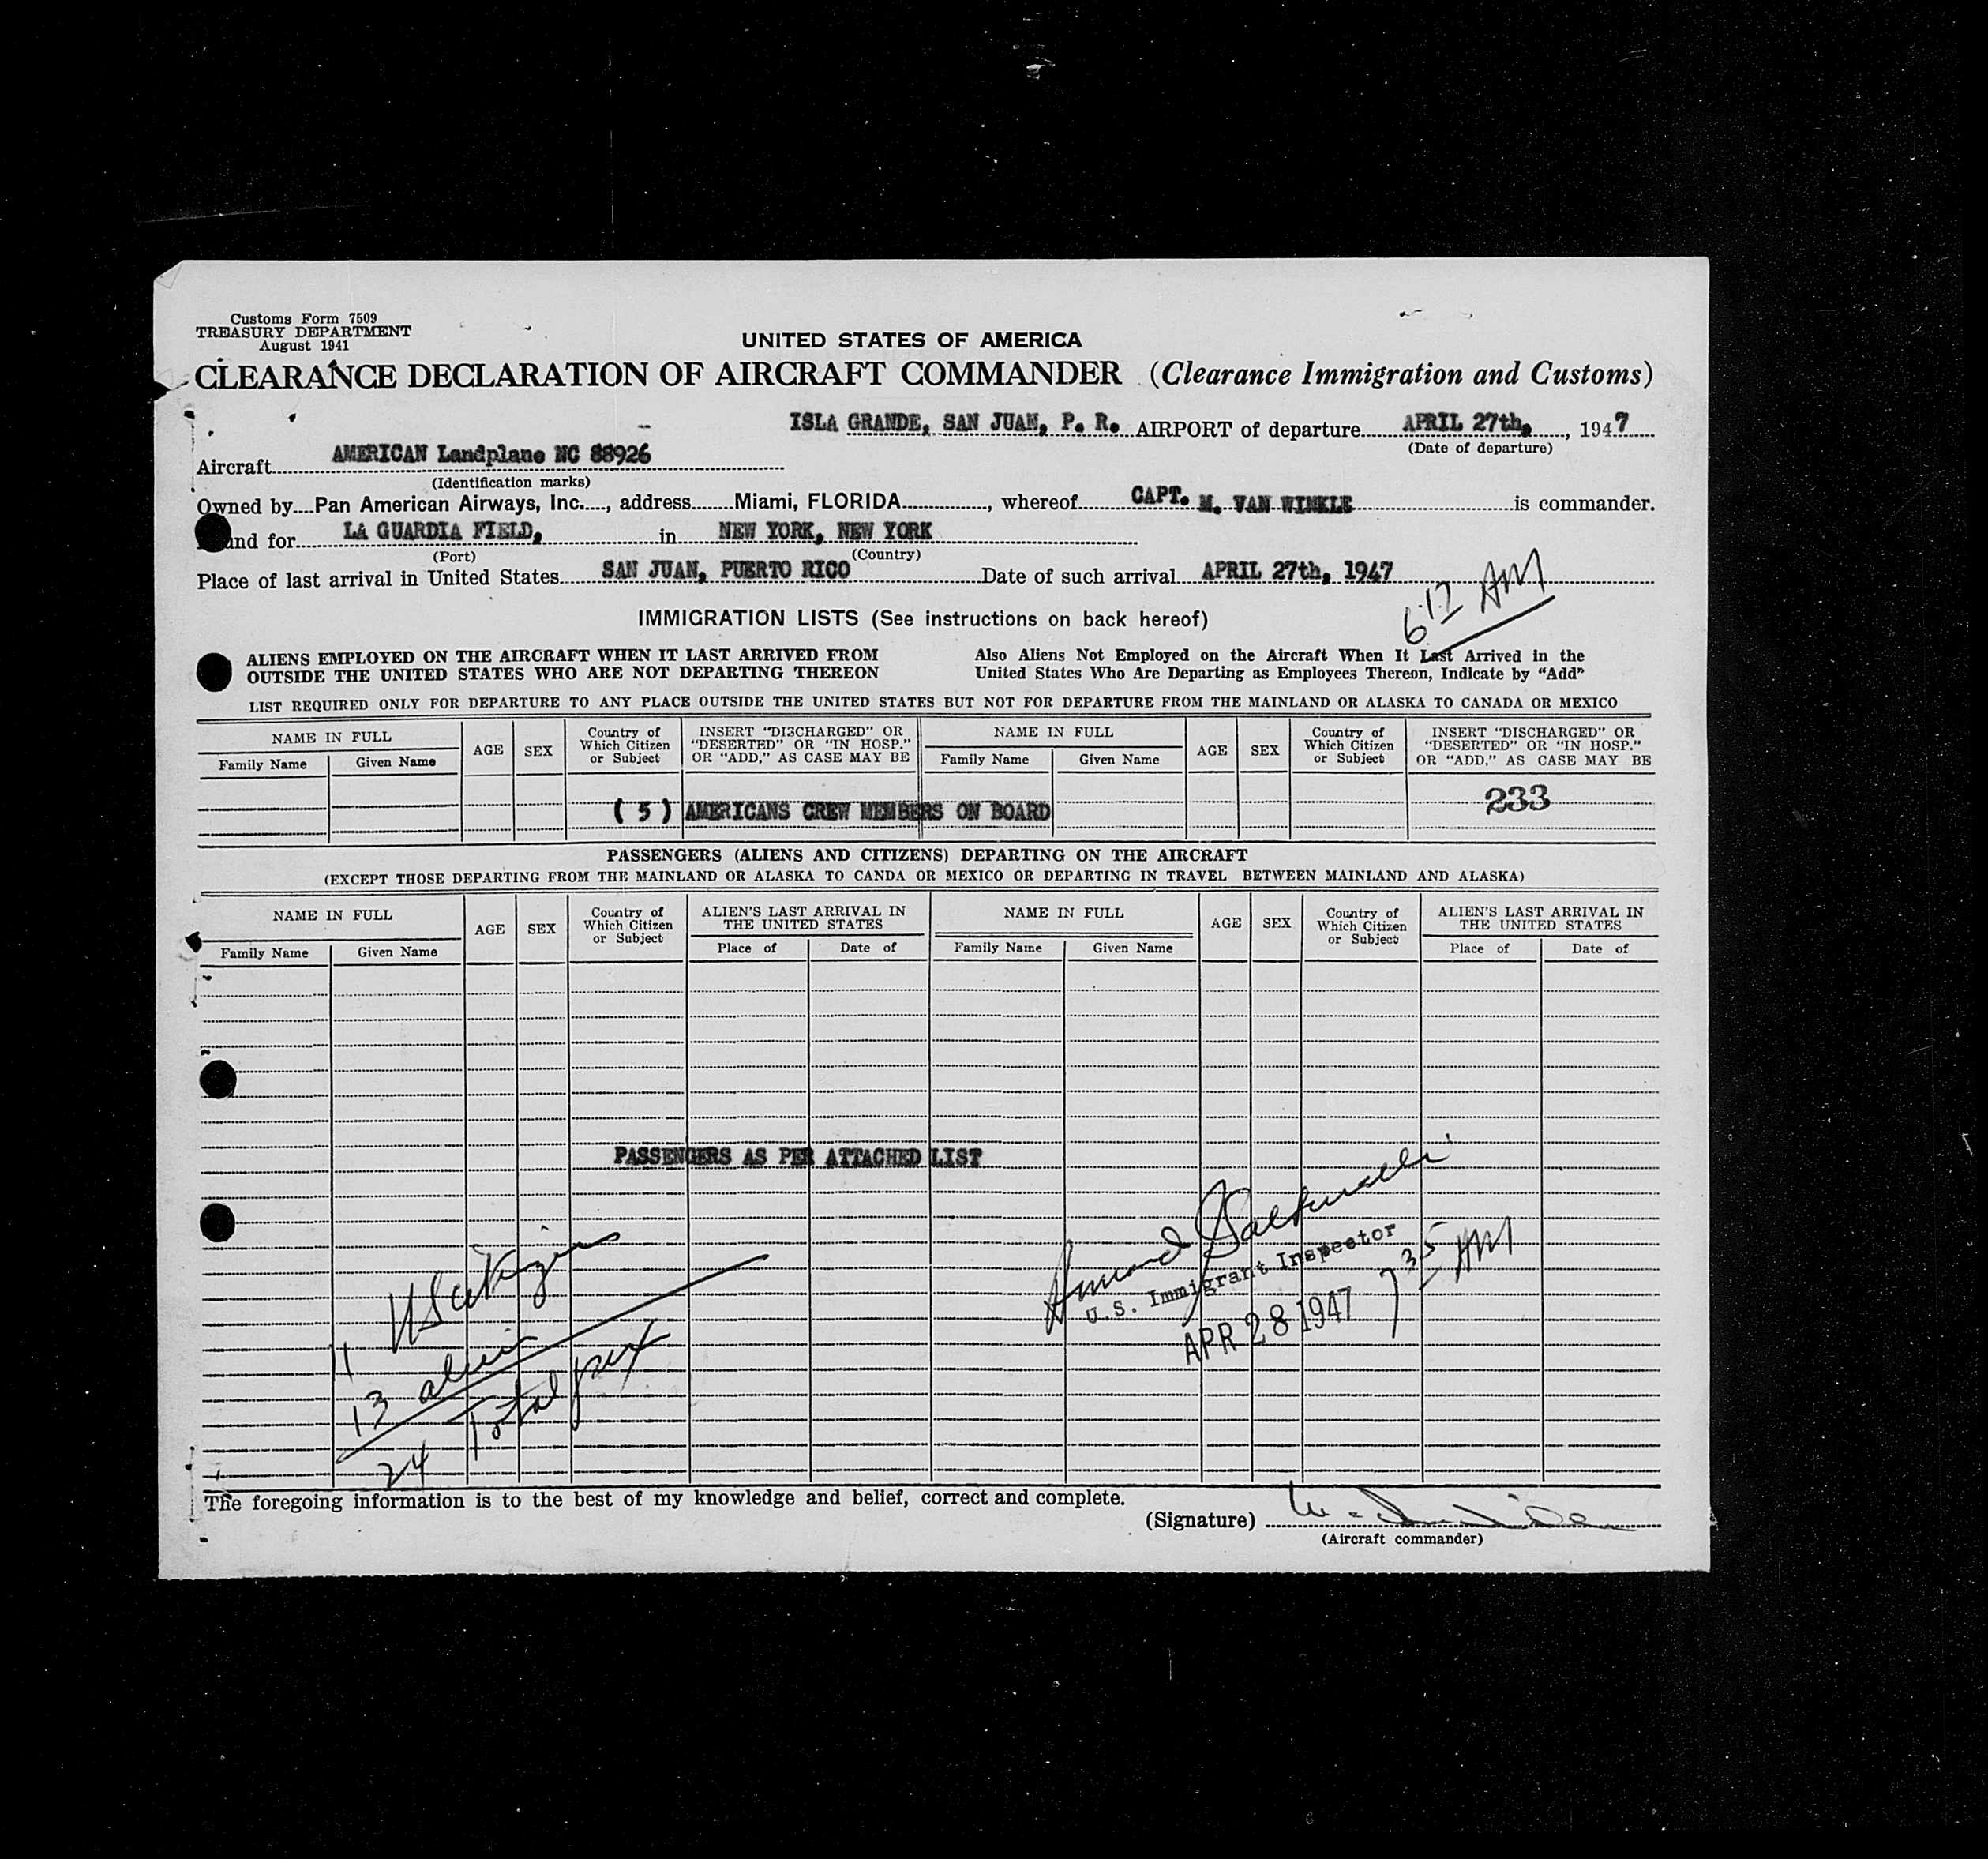 Customs Form 7509
TREASURY DEPARTMENT
August 1941
UNITED STATES OF AMERICA
CLEARANCE DECLARATION OF AIRCRAFT COMMANDER (Clearance Immigration and Customs)
ISLA GRANDE, SAN JUAN, P. R. AIRPORT of departure APRIL 27th, , 1947
(Date of departure)
Aircraft AMERICAN Landplane NC 88926
(Identification marks)
Owned by Pan American Airways, Inc. , address Miami, FLORIDA , whereof CAPT. M. VAN WINKLE is commander.
und for LA GUARDIA FIELD, in NEW YORK, NEW YORK
(Port) (Country)
Place of last arrival in United States SAN JUAN, PUERTO RICO Date of such arrival APRIL 27th, 1947
6:12 AM
IMMIGRATION LISTS (See instructions on back hereof)
ALIENS EMPLOYED ON THE AIRCRAFT WHEN IT LAST ARRIVED FROM
OUTSIDE THE UNITED STATES WHO ARE NOT DEPARTING THEREON
Also Aliens Not Employed on the Aircraft When It Last Arrived in the
United States Who Are Departing as Employees Thereon, Indicate by "Add"
LIST REQUIRED ONLY FOR DEPARTURE TO ANY PLACE OUTSIDE THE UNITED STATES BUT NOT FOR DEPARTURE FROM THE MAINLAND OR ALASKA TO CANADA OR MEXICO
NAME IN FULL
Family Name Given Name
AGE
SEX
Country of
Which Citizen
or Subject
INSERT "DISCHARGED" OR
"DESERTED" OR "IN HOSP."
OR "ADD," AS CASE MAY BE
NAME IN FULL
Family Name Given Name
AGE
SEX
Country of
Which Citizen
or Subject
INSERT "DISCHARGED" OR
"DESERTED" OR "IN HOSP."
OR "ADD," AS CASE MAY BE
233
(5) AMERICANS CREW MEMBERS ON BOARD
PASSENGERS (ALIENS AND CITIZENS) DEPARTING ON THE AIRCRAFT
(EXCEPT THOSE DEPARTING FROM THE MAINLAND OR ALASKA TO CANDA OR MEXICO OR DEPARTING IN TRAVEL BETWEEN MAINLAND AND ALASKA)
NAME IN FULL
Family Name Given Name
AGE
SEX
Country of
Which Citizen
or Subject
ALIEN'S LAST ARRIVAL IN
THE UNITED STATES
Place of Date of
NAME IN FULL
Family Name Given Name
AGE
SEX
Country of
Which Citizen
or Subject
ALIEN'S LAST ARRIVAL IN
THE UNITED STATES
Place of Date of
PASSENGERS AS PER ATTACHED LIST
U.S. Immigrant Inspector
APR 28 1947 7 35 AM
11
13 aliens
24 Total
The foregoing information is to the best of my knowledge and belief, correct and complete.
(Signature)
(Aircraft commander)